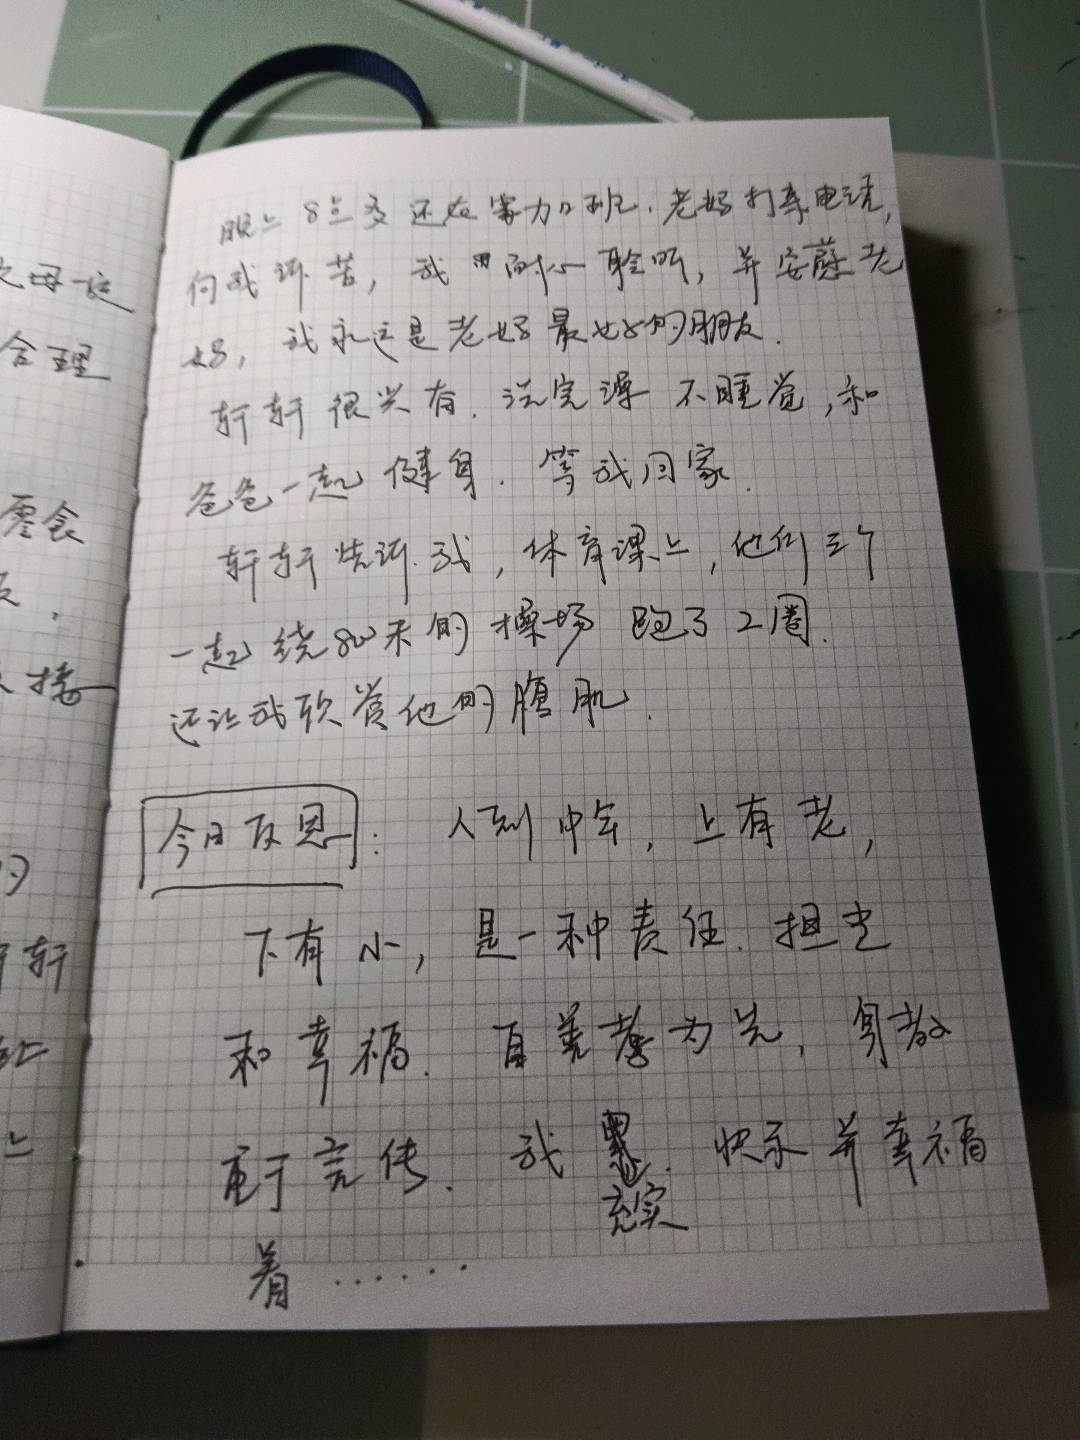 父母一定
合理
零食
接
的
轩轩
上
晚上8点多还在客加班.老妈打来电话,
向我诉苦,我耐心聆听,并安慰老
妈,我永远是老妈最好的朋友.
轩轩很兴奋.洗完澡不睡觉,和
爸爸一起健身.等我回家.
轩轩告诉我,体育课上,他们三个
一起绕800米的操场跑了2圈.
还让我欣赏他的腹肌.
今日反思: 人到中年,上有老,
下有小,是一种责任.担当
和幸福. 百善孝为先,身教
重于言传. 我充实.快乐并幸福
着······